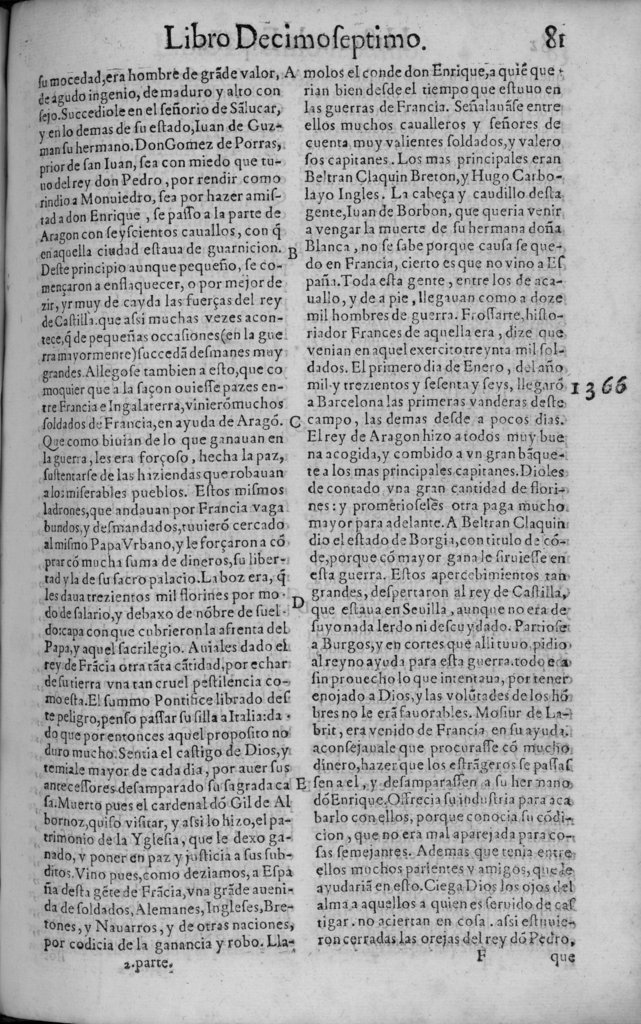 Libro Decimoseptimo. 81
su mocedad, era hombre de grãde valor,
de agudo ingenio, de maduro y alto con
sejo. Succediole en el señorio de Sãlucar,
y en lo demas de su estado, Iuan de Guz-
man su hermano. Don Gomez de Porras,
prior de san Iuan, sea con miedo que tu-
uo del rey don Pedro, por rendir como
rindio a Monuiedro, sea por hazer amis-
tad a don Enrique, se passo a la parte de
Aragon con seyscientos cauallos, con q̃
en aquella ciudad estaua de guarnicion.
Deste principio aunque pequeño, se co-
mençaron a enflaquecer, o por mejor de
zir, yr muy de cayda las fuerças del rey
de Castilla. que assi muchas vezes acon-
tece, q̃ de pequeñas occasiones (en la gue
rra mayormente) succedã desmanes muy
grandes. Allegose tambien a esto, que co
moquier que a la façon ouiesse pazes en-
tre Francia e Ingalaterra, vinierõ muchos
soldados de Francia, en ayuda de Aragõ.
Que como biuian de lo que ganauan en
la guerra, les era forçoso, hecha la paz,
sustentarse de las haziendas que robauan
a los miserables pueblos. Estos mismos
ladrones, que andauan por Francia vaga
bundos, y desmandados, tuuierõ cercado
al mismo Papa Vrbano, y le forçaron a cõ
prar cõ mucha suma de dineros, su liber-
tad y la de su sacro palacio. La boz era, q̃
les daua trezientos mil florines por mo-
do de salario, y debaxo de nõbre de suel
do: capa con que cubrieron la afrenta del
Papa, y aquel sacrilegio. Auiales dado el
rey de Frãcia otra tãta cãtidad, por echar
de su tierra vna tan cruel pestilencia co-
mo esta. El summo Pontifice librado des
te peligro, penso passar su silla a Italia: da-
do que por entonces aquel proposito no
duro mucho. Sentia el castigo de Dios, y
temiale mayor de cada dia, por auer sus
antecessores desamparado su sagrada ca
sa. Muerto pues el cardenal dõ Gil de Al
bornoz, quiso visitar, y assi lo hizo, el pa-
trimonio de la Yglesia, que le dexo ga-
nado, y poner en paz y justicia a sus sub-
ditos. Vino pues, como deziamos, a Espa
ña desta gẽte de Frãcia, vna grãde aueni-
da de soldados, Alemanes, Ingleses, Bre-
tones, y Nauarros, y de otras naciones,
por codicia de la ganancia y robo. Lla-
2. parte.
A
B
C
D
E
molos el conde don Enrique, a quiẽ que-
rian bien desde el tiempo que estuuo en
las guerras de Francia. Señalauãse entre
ellos muchos caualleros y señores de
cuenta muy valientes soldados, y valero
sos capitanes. Los mas principales eran
Beltran Claquin Breton, y Hugo Carbo-
layo Ingles. La cabeça y caudillo desta
gente, Iuan de Borbon, que queria venir
a vengar la muerte de su hermana doña
Blanca, no se sabe porque causa se que-
do en Francia, cierto es que no vino a Es
paña. Toda esta gente, entre los de aca-
uallo, y de a pie, llegauan como a doze
mil hombres de guerra. Frossarte, histo-
riador Frances de aquella era, dize que
venian en aquel exercito treynta mil sol-
dados. El primero dia de Enero, del año
mil y trezientos y sesenta y seys, llegarõ
1366
a Barcelona las primeras vanderas deste
campo, las demas desde a pocos dias.
El rey de Aragon hizo a todos muy bue
na acogida, y combido a vn gran bãque-
te a los mas principales capitanes. Dioles
de contado vna gran cantidad de flori-
nes: y prometioseles otra paga mucho
mayor para adelante. A Beltran Claquin
dio el estado de Borgia, con titulo de cõ-
de, porque cõ mayor gana le siruiesse en
esta guerra. Estos apercebimientos tan
grandes, despertaron al rey de Castilla,
que estaua en Seuilla, aunque no era de
suyo nada lerdo ni descuydado. Partiose
a Burgos, y en cortes que alli tuuo, pidio
al reyno ayuda para esta guerra. todo era
sin prouecho lo que intentaua, por tener
enojado a Dios, y las volũtades de los hõ
bres no le erã fauorables. Mosiur de La-
brit, era venido de Francia en su ayuda.
aconsejauale que procurasse cõ mucho
dinero, hazer que los estrãgeros se passas
sen a el, y desamparassen a su hermano
dõ Enrique. Offrecia su industria para aca
barlo con ellos, porque conocia su cõdi-
cion, que no era mal aparejada para co-
sas semejantes. Ademas que tenia entre
ellos muchos parientes y amigos, que le
ayudariã en esto. Ciega Dios los ojos del
alma a aquellos a quien es seruido de cas
tigar. no aciertan en cosa. assi estuuie-
ron cerradas las orejas del rey dõ Pedro,
F que